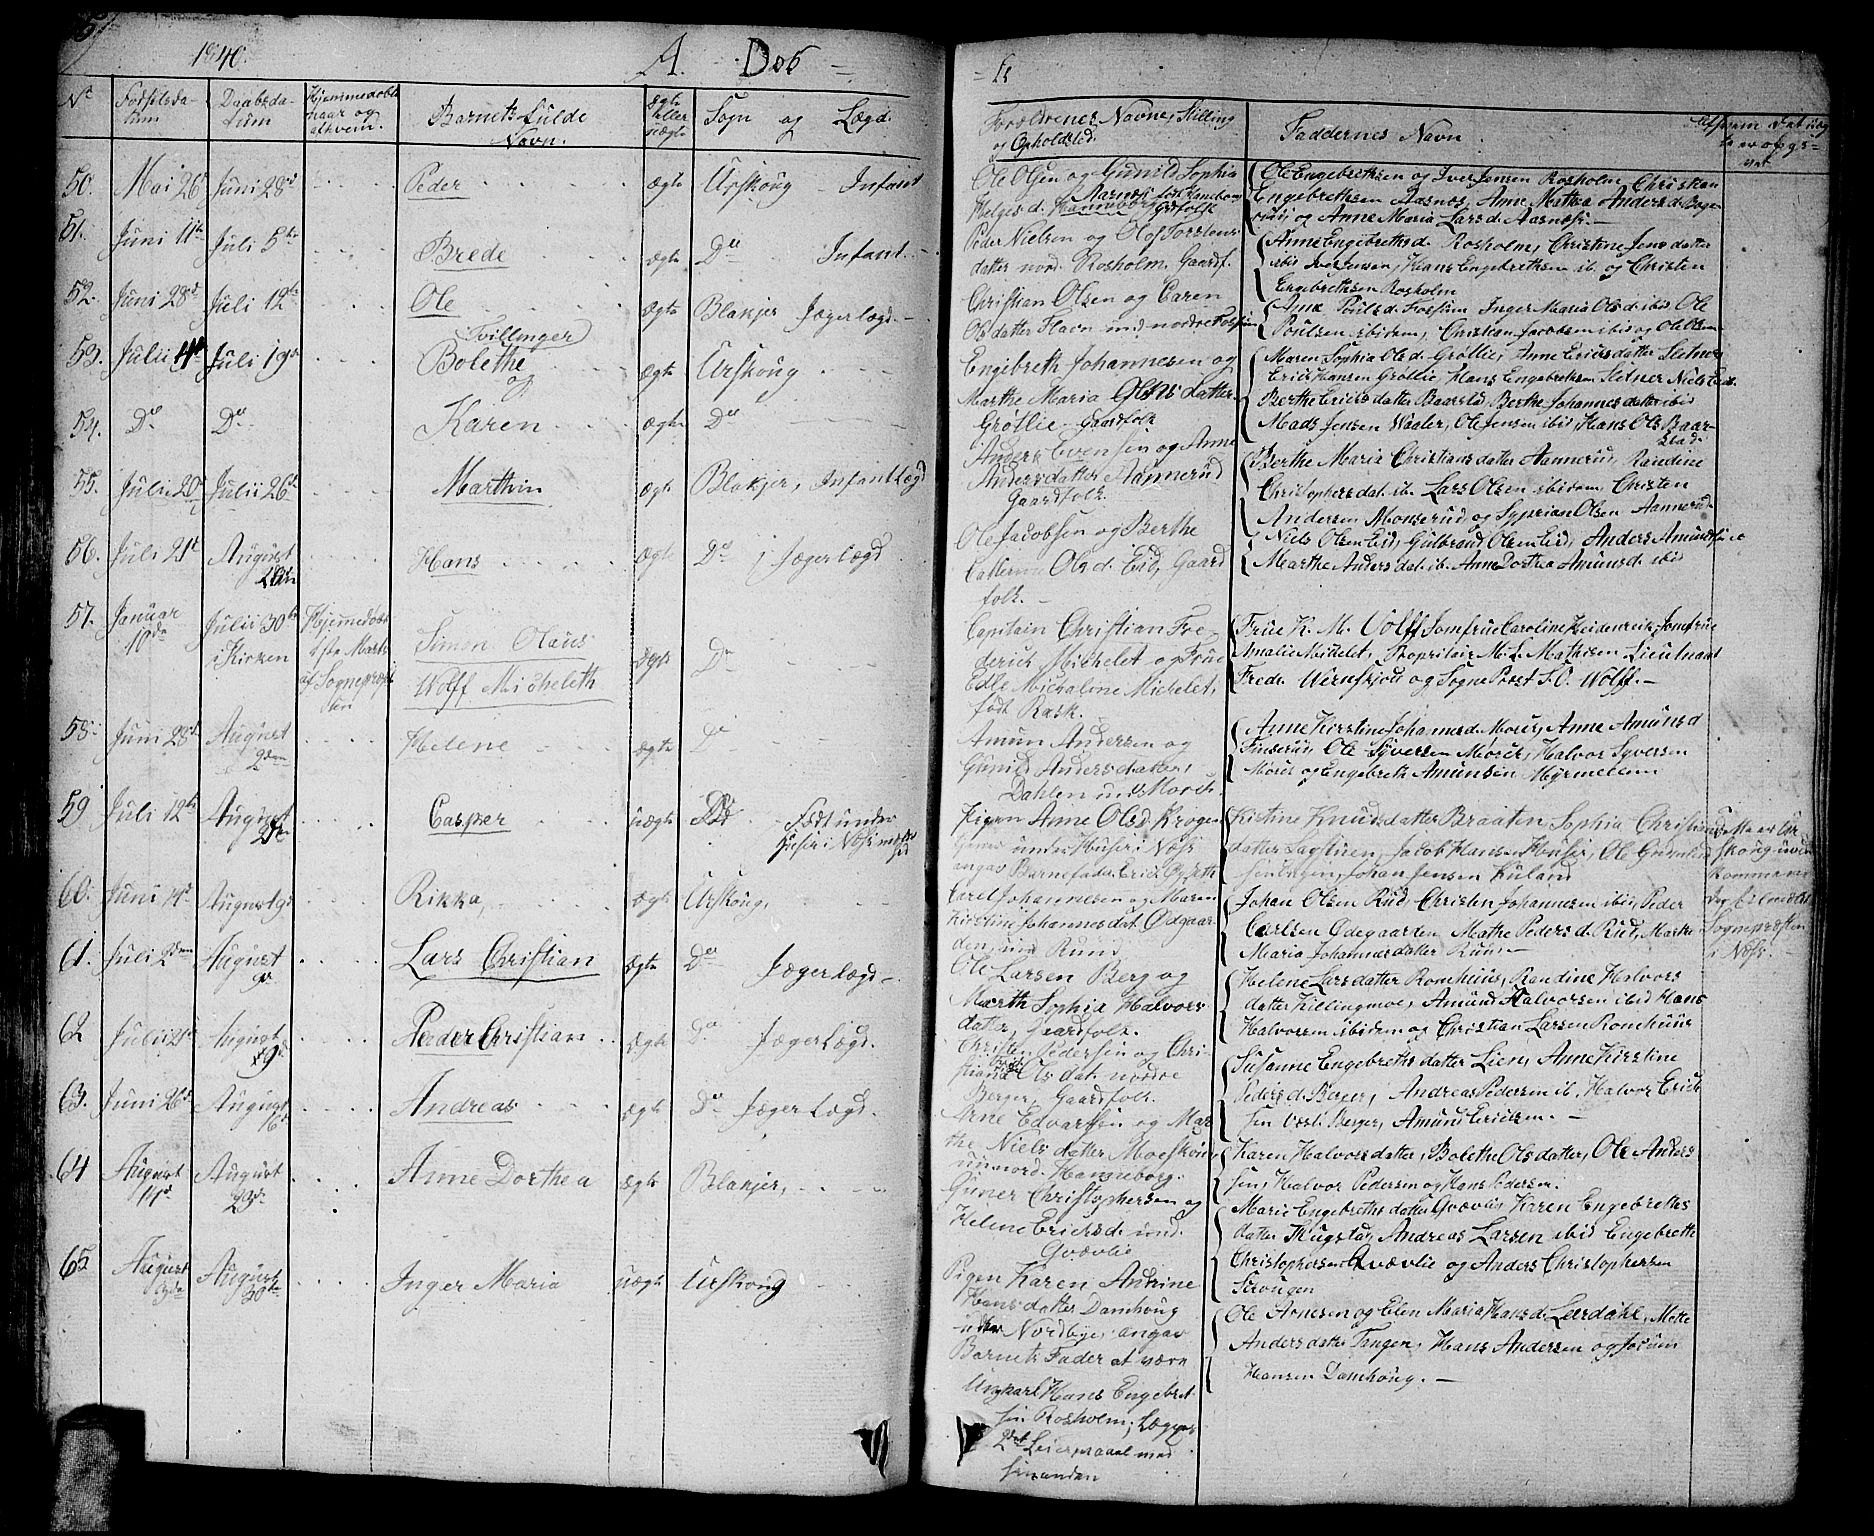 1840.
A. Døb
te
No
Fødselsda-
tum
Daabsda-
tum
Hjemmedøbt
naar og
afhvem.
Barnets fulde
Navn.
ægte
eller
uægte
Sogn og Lægd.
Forældrenes Navne, Stilling
og Opholdsted.
Faddernes Navn
50. Mai 26 Juni 28 Peder ægte Urskoug Infant
Ole Olsen og Gunild Sophia
Helges d. Hanneborg Gaardfolk
Ole Engebrethsen og Iver Jensen Rosholm Christian
Engebrethsen Aasnæs, Anne Mathea Anders d.
og Anne Maria Lars d. Aasnæss.
51. Juni 11 Juli 5 Brede ægte Do Infant
Peder Nielsen og Olof Torstens
datter nord. Rosholm. Gaardf.
Anne Engebreths d. Rosholm, Christine Jens datter
ibid Iver Jensen, Hans Engebrethsen ib. og Christen
Engebrethsen Rosholm
52. Juni 28 Juli 12 Ole ægte Blakjer Jægerlægd
Christian Olsen og Caren
Ols datter Flaen und nordre Fossum
Ane Pouls d. Fossum Inger Maria Ols d. ibid Ole
Poulsen ibidem, Christian Jacobsen ibid og Ole Olsen
Tvillinger
53. Julii 4 Juli 19 Bolethe ægte Urskoug
og
Engebreth Johannesen og
Marthe Maria Olsdatter
Grøtlie Gaardfolk
Maren Sophia Ols d. Grøtlie, Anne Ericsdatter Sletner
Erich Hansen Grøtlie, Hans Engebrethsen Sletner Niels
54. Do Do Karen ægte Do
Berthe Ericsdatter Baarstad, Berthe Johannesdatter ibid
Mads Jensen Waaler, Ole Jensen ibid, Hans Ols Baar-
stad
55. Julii 20 Julii 26 Marthin ægte Blakjer, Infant Lægd
Anders Evensen og Anne
Andersdatter Aannerud
Gaardfolk.
Berthe Maria Christiansdatter Aannerud, Randine
Christophersdat. ib. Lars Olsen ibidem Christen
Andersen Monserud og Syprian Olsen Aannerud
56. Juli 21 August Hans ægte Do Jægerlægd
Ole Jacobsen og Berthe
Cathrine Ols d. Eid, Gaard
folk.
Niels Olsen Eid, Gulbrand Olsen Eid, Anders Amundsen
Marthe Anders dat. ib. Anne Dorthea Amunds d. ibid
57. Januar
10de
Julii 30te
i Kirken
Hjemedøbt
1ste Marts
af Sognepræst
Simon Olaus
Wolff Micheleth
ægte Do
Capitain Christian Fre-
derich Michelet og Frue
Edle Michaline Michelet,
født Rask.
Frue K. M. Wolff Jomfrue Caroline Heidenreich Jomfrue
Amalie Michelet, Propritair M. L. Mathisen Lieutnant
Fredr. Wernskjold og Sogne Præst S. O. Wolff.
58. Juni 28 August
2den Helene ægte Do
Amun Andersen og
Gunild Andersdatter,
Dahlen und Morch.
Anne Kirstine Johannes d. Morch, Anne Amunds d
Ole Syversen Morch, Halvor Syversen
Morch og Engebreth Amundsen Myrmelem
59 Juli 12 August
2 Casper uægte Do Født under
Huser i Næss
Pigen Anne Ols d. Krogen
under Huser i Næss
angav Barnefader Erich
Kistine Knuds datter Braaten Sophia Christians
datter Lagstuen, Jacob Hansen Huser, Ole
Johan Jensen Huland
60. Juni 14 August 9 Rikka, ægte Urskoug,
Carl Johannesen og Maren
Kirstine Johannesdat. Ødegaar-
den, und Ruud
Johan Olsen Rud, Christen Johannesen ibid, Peder
Carlsen Ødegaarden Mathe Peders d. Rud, Marthe
Maria Johannesdatter Ruud
Sognepræsten
i Næss.
61. Juli 2den August
9 Lars Christian ægte Do Jægerlægd
Ole Larsen Berg og
Marth Sophia Halvors
datter, Gaardfolk.
Helene Larsdatter Romhuus, Randine Halvors
datter Killingmoe, Amund Halvorsen ibid Hans
Halvorsen ibidem og Christian Larsen Romhuus
62 Julii 21 August
9 Peder Christian ægte Do Jægerlægd.
Christen Pedersen og Chri-
stiane Ols dat. nordre
Berger, Gaardfolk.
Susanne Engebrethsdatter Lien, Anne Kirstine
Peders d. Berger, Andreas Pedersen ib. Halvor Erich
sen Væstl. Berger, Amund Ericksen.
63. Juni 26 August
16 Andreas ægte Do Jægerlægd.
Arne Edvarsen og Mar
the Nielsdatter Mooskoug
und nord. Hanneborg.
Karen Halvorsdatter, Bolethe Olsdatter, Ole Anders
sen, Halvor Pedersen og Hans Pedersen.
64 August
11 August
23 Anne Dorthea ægte Blakjer,
Guner Christophersen og
Helene Ericks d. und.
Qvævlie
Marie Engebrethsdatter Qvævlie, Karen Engebreths
datter Andreas Larsen ibid Engebreth
Christophersen Qvævlie og Anders Christophersen
Scougen
65 August August
30 Inger Maria uægte Urskoug
Pigen Karen Andrine
Hansdatter Damhoug
under Nordbye, angav
Barnets Fader at være
Ungkarl Hans Engebret
sen Rosholm, Lægger
2det Leiermaal med
hinanden
Ole Arnesen og Elen Maria Hans d. Leerdahl, Mette
Andersdatter Tangen, Hans Andersen og Joram
Hansen Damhoug.